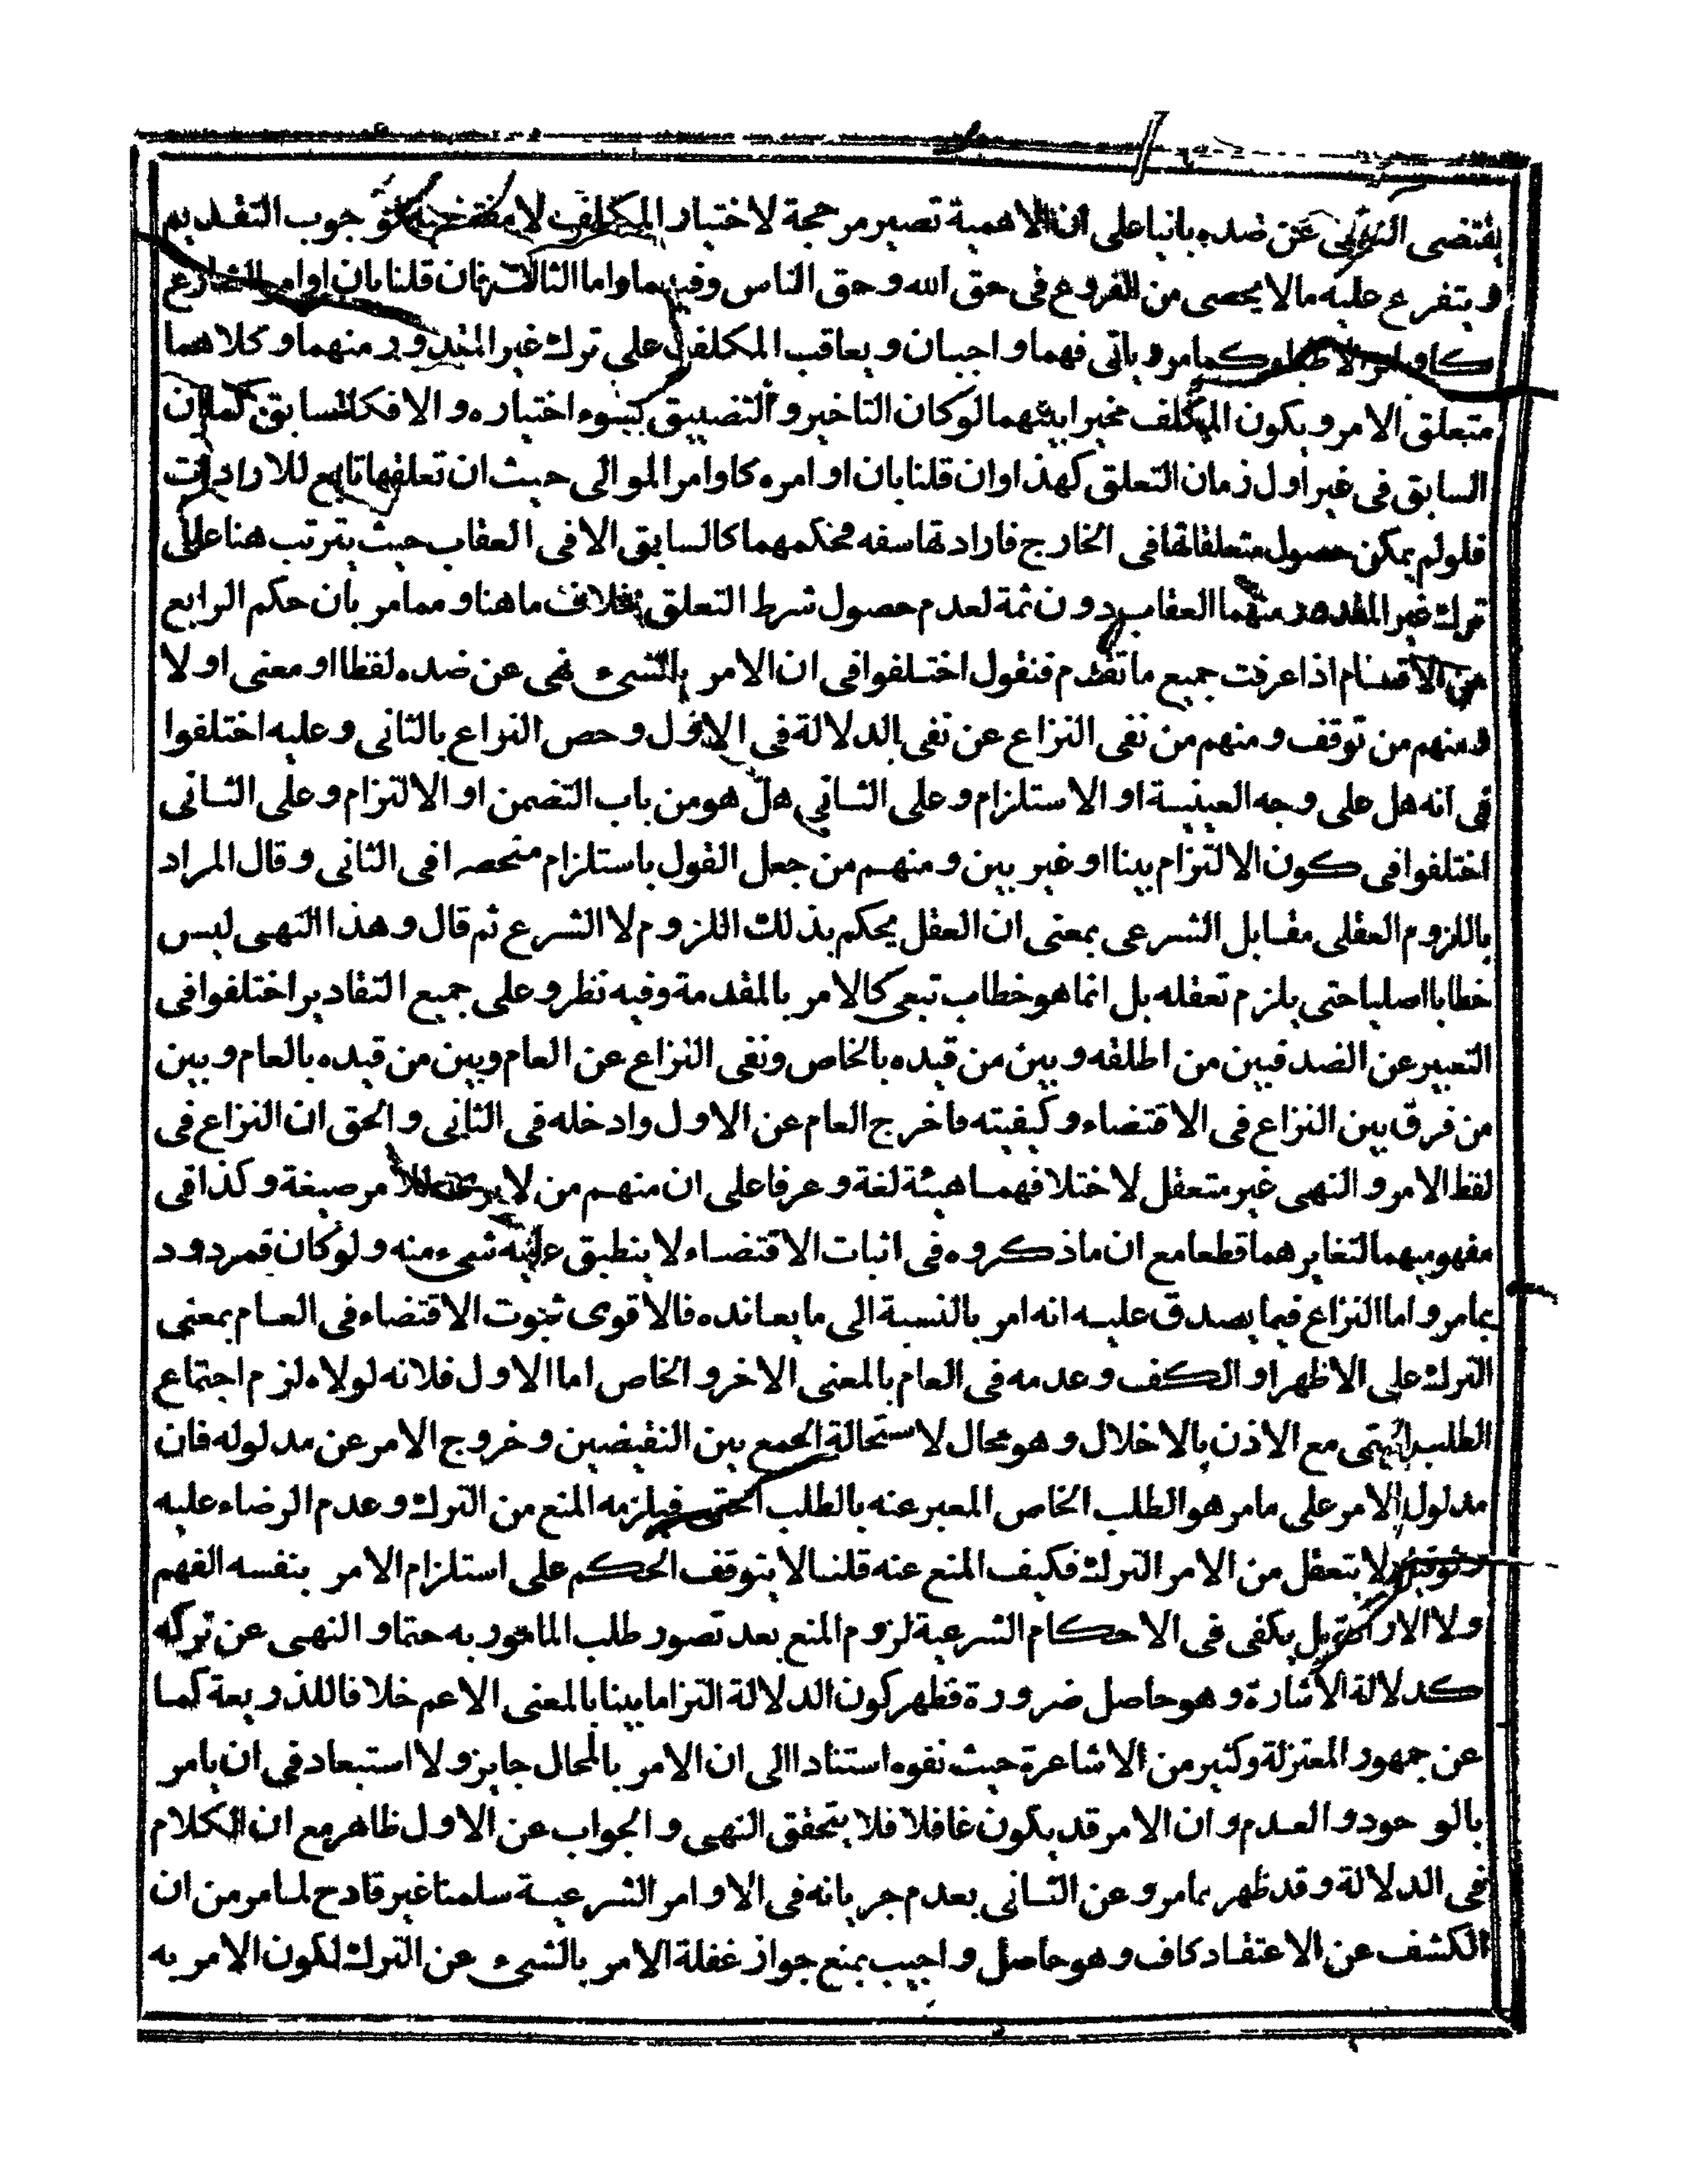 يقتضى النهى عن ضده بانيا على ان الاهمية تصير مرجحة لاختيار المكلف لا جوب التقديم
ويتفرع عليه ما لا يحصى من الفروع فى حق الله وحق الناس وفيهما واما الثالث فان قلنا بان اوامر الشارع
كاوامر الاطباء كما مر وياتى فهما واجبان ويعاقب المكلف على ترك غير المقدور منهما وكلاهما
متعلق الامر ويكون المكلف مخيرا بينهما لو كان التاخير والتضييق بسوء اختياره والا فكالسابق كما ان
السابق فى غير اول زمان التعلق كهذا وان قلنا بان اوامره كاوامر الموالى حيث ان تعلقها تابع للارادات
فلو لم يمكن حصول متعلقاتها فى الخارج فارادتها سفه فحكمهما كالسابق الا فى العقاب حيث يترتب هنا على
ترك غير المقدور منهما العقاب دون ثمة لعدم حصول شرط التعلق بخلاف ما هنا ومما مر بان حكم الرابع
من الاقسام اذا عرفت جميع ما تقدم فنقول اختلفوا فى ان الامر بالشىء نهى عن ضده لفظا او معنى او لا
ومنهم من توقف ومنهم من نفى النزاع عن نفى الدلالة فى الاول وحص النزاع بالثانى وعليه اختلفوا
فى انه هل على وجه العينية او الاستلزام وعلى الثانى هل هو من باب التضمن او الالتزام وعلى الثانى
اختلفوا فى كون الالتزام بينا او غير بين ومنهم من جعل القول باستلزام منحصرا فى الثانى وقال المراد
باللزوم العقلى مقابل الشرعى بمعنى ان العقل يحكم بذلك اللزوم لا الشرع ثم قال وهذا النهى ليس
خطابا اصليا حتى يلزم تعقله بل انما هو خطاب تبعى كالامر بالمقدمة وفيه نظر وعلى جميع التقادير اختلفوا فى
التعبير عن الضد فبين من اطلقه وبين من قيده بالخاص ونفى النزاع عن العام وبين من قيده بالعام وبين
من فرق بين النزاع فى الاقتضاء وكيفيته فاخرج العام عن الاول وادخله فى الثانى والحق ان النزاع فى
لفظ الامر والنهى غير متعقل لاختلافهما هيئة لغة وعرفا على ان منهم من لا يرى للامر صيغة وكذا فى
مفهوميهما لتغايرهما قطعا مع ان ما ذكروه فى اثبات الاقتضاء لا ينطبق عليه شىء منه ولو كان فمردود
بما مر واما النزاع فيما يصدق عليه انه امر بالنسبة الى ما يعانده فالاقوى ثبوت الاقتضاء فى العام بمعنى
الترك على الاظهر او الكف وعدمه فى العام بالمعنى الاخر والخاص اما الاول فلانه لولاه لزم اجتماع
الطلب الحتمى مع الاذن بالاخلال وهو محال لاستحالة الجمع بين النقيضين وخروج الامر عن مدلوله فان
مدلول الامر على ما مر هو الطلب الخاص المعبر عنه بالطلب الحتمى فيلزمه المنع من الترك وعدم الرضاء عليه
لا يتعقل من الامر الترك فكيف المنع عنه قلنا لا يتوقف الحكم على استلزام الامر بنفسه الفهم
ولا الارادة بل يكفى فى الاحكام الشرعية لزوم المنع بعد تصور طلب المامور به حتما والنهى عن تركه
كدلالة الاشارة وهو حاصل ضرورة فظهر كون الدلالة التزاما بينا بالمعنى الاعم خلافا للذريعة كما
عن جمهور المعتزلة وكثير من الاشاعرة حيث نفوه استنادا الى ان الامر بالمحال جايز ولا استبعاد فى ان يامر
بالوجود والعدم وان الامر قد يكون غافلا فلا يتحقق النهى والجواب عن الاول ظاهر مع ان الكلام
فى الدلالة وقد ظهر بما مر وعن الثانى بعدم جريانه فى الاوامر الشرعية سلمنا غير قادح لما مر من ان
الكشف عن الاعتقاد كاف وهو حاصل واجيب بمنع جواز غفلة الامر بالشىء عن الترك لكون الامر به